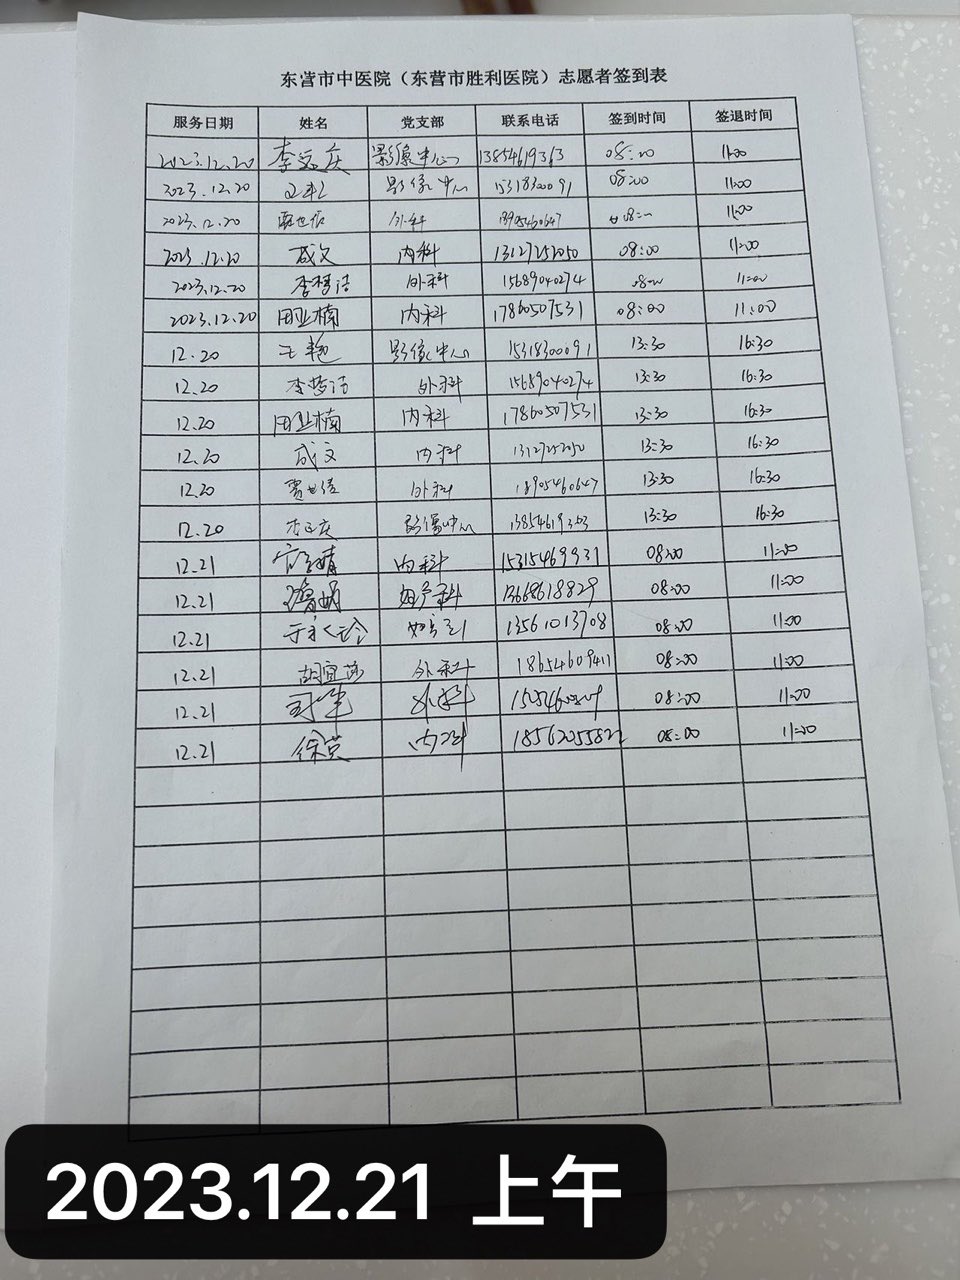 东营市中医院（东营市胜利医院）志愿者签到表
服务日期 姓名 党支部 联系电话 签到时间 签退时间
2023.12.20 影像中心 13854619363 08:00 11:00
2023.12.20 影像中心 15318300091 08:00 11:00
2023.12.20 外科 11:00
2023.12.20 成文 内科 13127252050 08:00 11:00
2023.12.20 李梦洁 外科 15689040274 08:00 11:00
2023.12.20 田业楠 内科 17860507531 08:00 11:00
12.20 王艳 影像中心 15318300091 13:30 16:30
12.20 李梦洁 外科 15689040274 13:30 16:30
12.20 田业楠 内科 17860507531 13:30 16:30
12.20 成文 内科 13127252050 13:30 16:30
12.20 外科 18905460647 13:30 16:30
12.20 影像中心 13:30 16:30
12.21 内科 15315469931 08:00 11:00
12.21 妇产科 13668618829 08:00 11:00
12.21 13561013708 08:00 11:00
12.21 胡宜莎 外科 18654609411 08:00 11:00
12.21 外科 08:00 11:00
12.21 徐英 内科 08:00 11:00
2023.12.21 上午